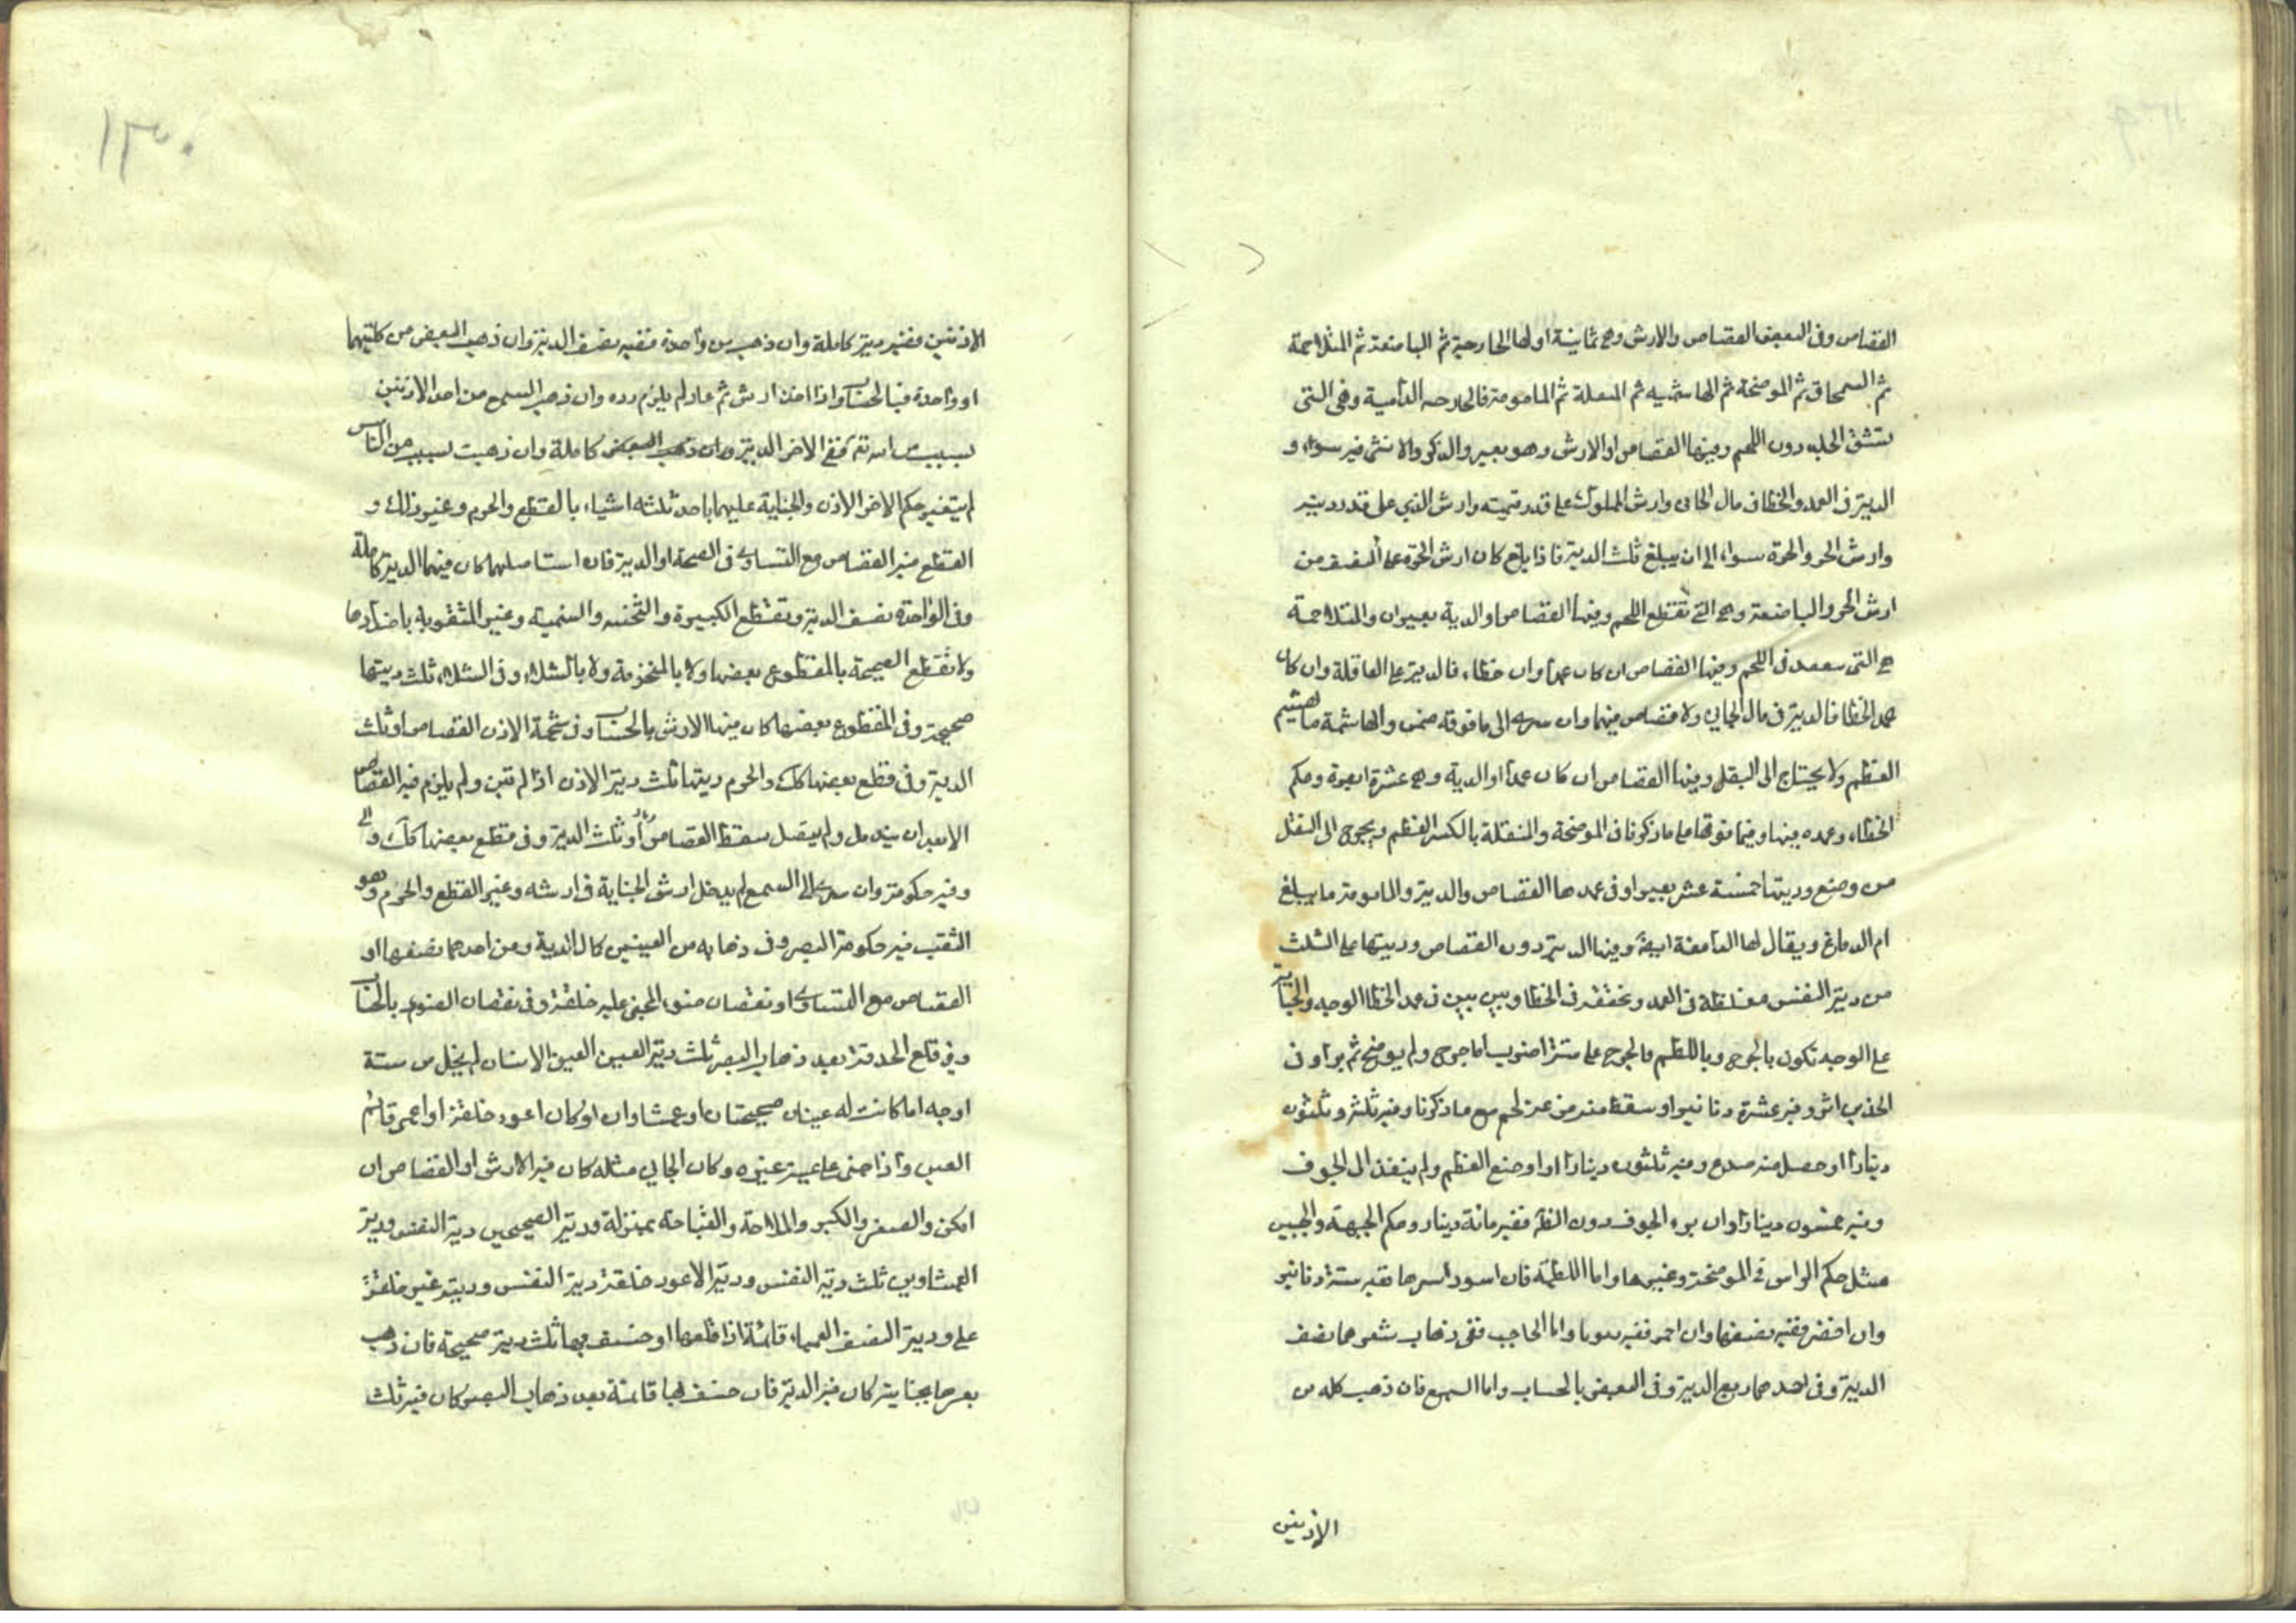 القصاص وفى البعض القصاص والارش وهى ثمانية اولها الحارصة ثم الباضعة ثم المتلاحمة
ثم السمحاق ثم الموضحة ثم الهاشمة ثم المنقلة ثم المامومة فالحارصه الدامية وهى التى
تشق الجلد دون اللحم وفيها القصاص او الارش وهو بعير والذكر والانثى فيه سواء و
الدية فى العمد والخطا فى مال الجانى وارش المملوك على قدر قيمته وارش الذمي على قدر ديته
وارش الحر والحرة سواء الى ان يبلغ ثلث الدية فاذا بلغ كان ارش الحرة على النصف من
ارش الحر والباضعة وهى التى تقطع اللحم وفيها القصاص او الدية بعيران والمتلاحمة
هى التى تنفذ فى اللحم وفيها القصاص ان كان عمدا وان خطاء فالدية على العاقلة وان كان
عمد الخطا فالدية فى مال الجاني ولا قصاص فيهما وان سرى الى ما فوقه ضمن والهاشمة ما تهشيم
العظم ولا يحتاج الى النقل وفيها القصاص ان كان عمدا او الدية وهى عشرة ابعرة وحكم
الخطاء وعمده فيها وفيما فوقها على ما ذكرنا فى الموضحة والمنقلة بالكسر العظم ويحوج الى النقل
من وضع وديتها خمسة عشر بعيرا وفى عمدها القصاص والدية والمامومة ما يبلغ
ام الدماغ ويقال لها الدامغة ايضا وفيها الدية دون القصاص وديتها على الثلث
من دية النفس مغلظة فى العمد ومخففة فى الخطا وبين بين فى عمد الخطا الوجه والجناية
على الوجه تكون بالجرح وباللطم فالجرح على ستة اضرب اما جرح ولم يوضح ثم برا وفى
الخدين اثر وفيه عشرة دنانير او سقط منه مزعة لحم مع ما ذكرنا وفيه ثلثة وثلثون
دينارا او حصل منه صدع وفيه ثلثون دينارا او اوضع العظم ولم ينفذ الى الجوف
وفيه خمسون دينارا وان برء الجوف دون الفم ففيه مائة دينار وحكم الجبهة والجبين
مثل حكم الراس فى الموضحة وغيرها واما اللطمة فان اسود اثرها ففيه ستة دنانير
وان اخضر ففيه نصفها وان احمر ففيه ربعها واما الحاجب ففى ذهاب شعرهما نصف
الدية وفى احدهما ربع الدية وفى البعض بالحساب واما السمع فان ذهب كله من
الاذنين
١٣٠
الاذنين ففيه دية كاملة وان ذهب من واحدة ففيه نصف الدية وان ذهب البعض من كلتيهما
او واحدة فبالحساب واذا اخذ ارش ثم عاد لم يلزم رده وان ذهب السمع من احد الاذنين
بسبب من الله ففى الاخر الدية وان ذهب البعض كاملة وان ذهبت بسبب من الناس
لم يتغير حكم الاخر الاذن والجناية عليهما باحد ثلثه اشياء بالقطع والخرم وغير ذلك و
القطع فيه القصاص مع التساوى فى الصحة او الدية فان استاصلهما كان فيهما الدية كاملة
وفى الواحدة نصف الدية وتقطع الكبيرة والثخينة والسمينة وغير المثقوبة باضدادها
ولا تقطع الصحيحة بالمقطوع بعضها ولا بالمخرومة ولا بالشلاء وفى الشلاء ثلث ديتها
صحيحة وفى المقطوع بعضها كان فيها الارش بالحساب وفى شحمة الاذن القصاص او ثلث
الدية وفى قطع بعضها كك والخرم ديتها ثلث دية الاذن اذا لم تبن ولم يلزم فيه القصاص
الا بعد ان يندمل ولم يتصل سقط القصاص او ثلث الدية وفى قطع بعضها كك والى
وفيه حكومة وان سرى الى السمع لم يدخل ارش الجناية فى ارشه وغير القطع والخرم وهو
الثقب فيه حكومة البصر وفى ذهابه من العينين كمال الدية ومن احدهما نصفها او
القصاص مع التساوى او نقصان ضوء المجنى عليه خلقة وفى نقصان الضوء بالحساب
وفى قلع الحدقة بعد ذهاب البصر ثلث دية العين العين الانسان لم يخل من ستة
اوجه اما كانت له عينان صحيحتان او عمشاوان او كان اعور خلقة او اعمى قائم
العين واذا جنى على عين غيره وكان الجاني مثله كان فيه الارش او القصاص ان
امكن والصغر والكبر والملاحة والقباحة بمنزلة ودية الصحيحين دية النفس ودية
العمشاوين ثلث دية النفس ودية الاعور خلقة دية النفس ودية غير خلقة
على ودية النصف العمياء قائمة اذا قلعها او خسف بها ثلث دية صحيحة فان ذهب
بصرها بجناية كان فيه الدية فان خسف بها قائمة بعد ذهاب البصر كان فيه ثلث